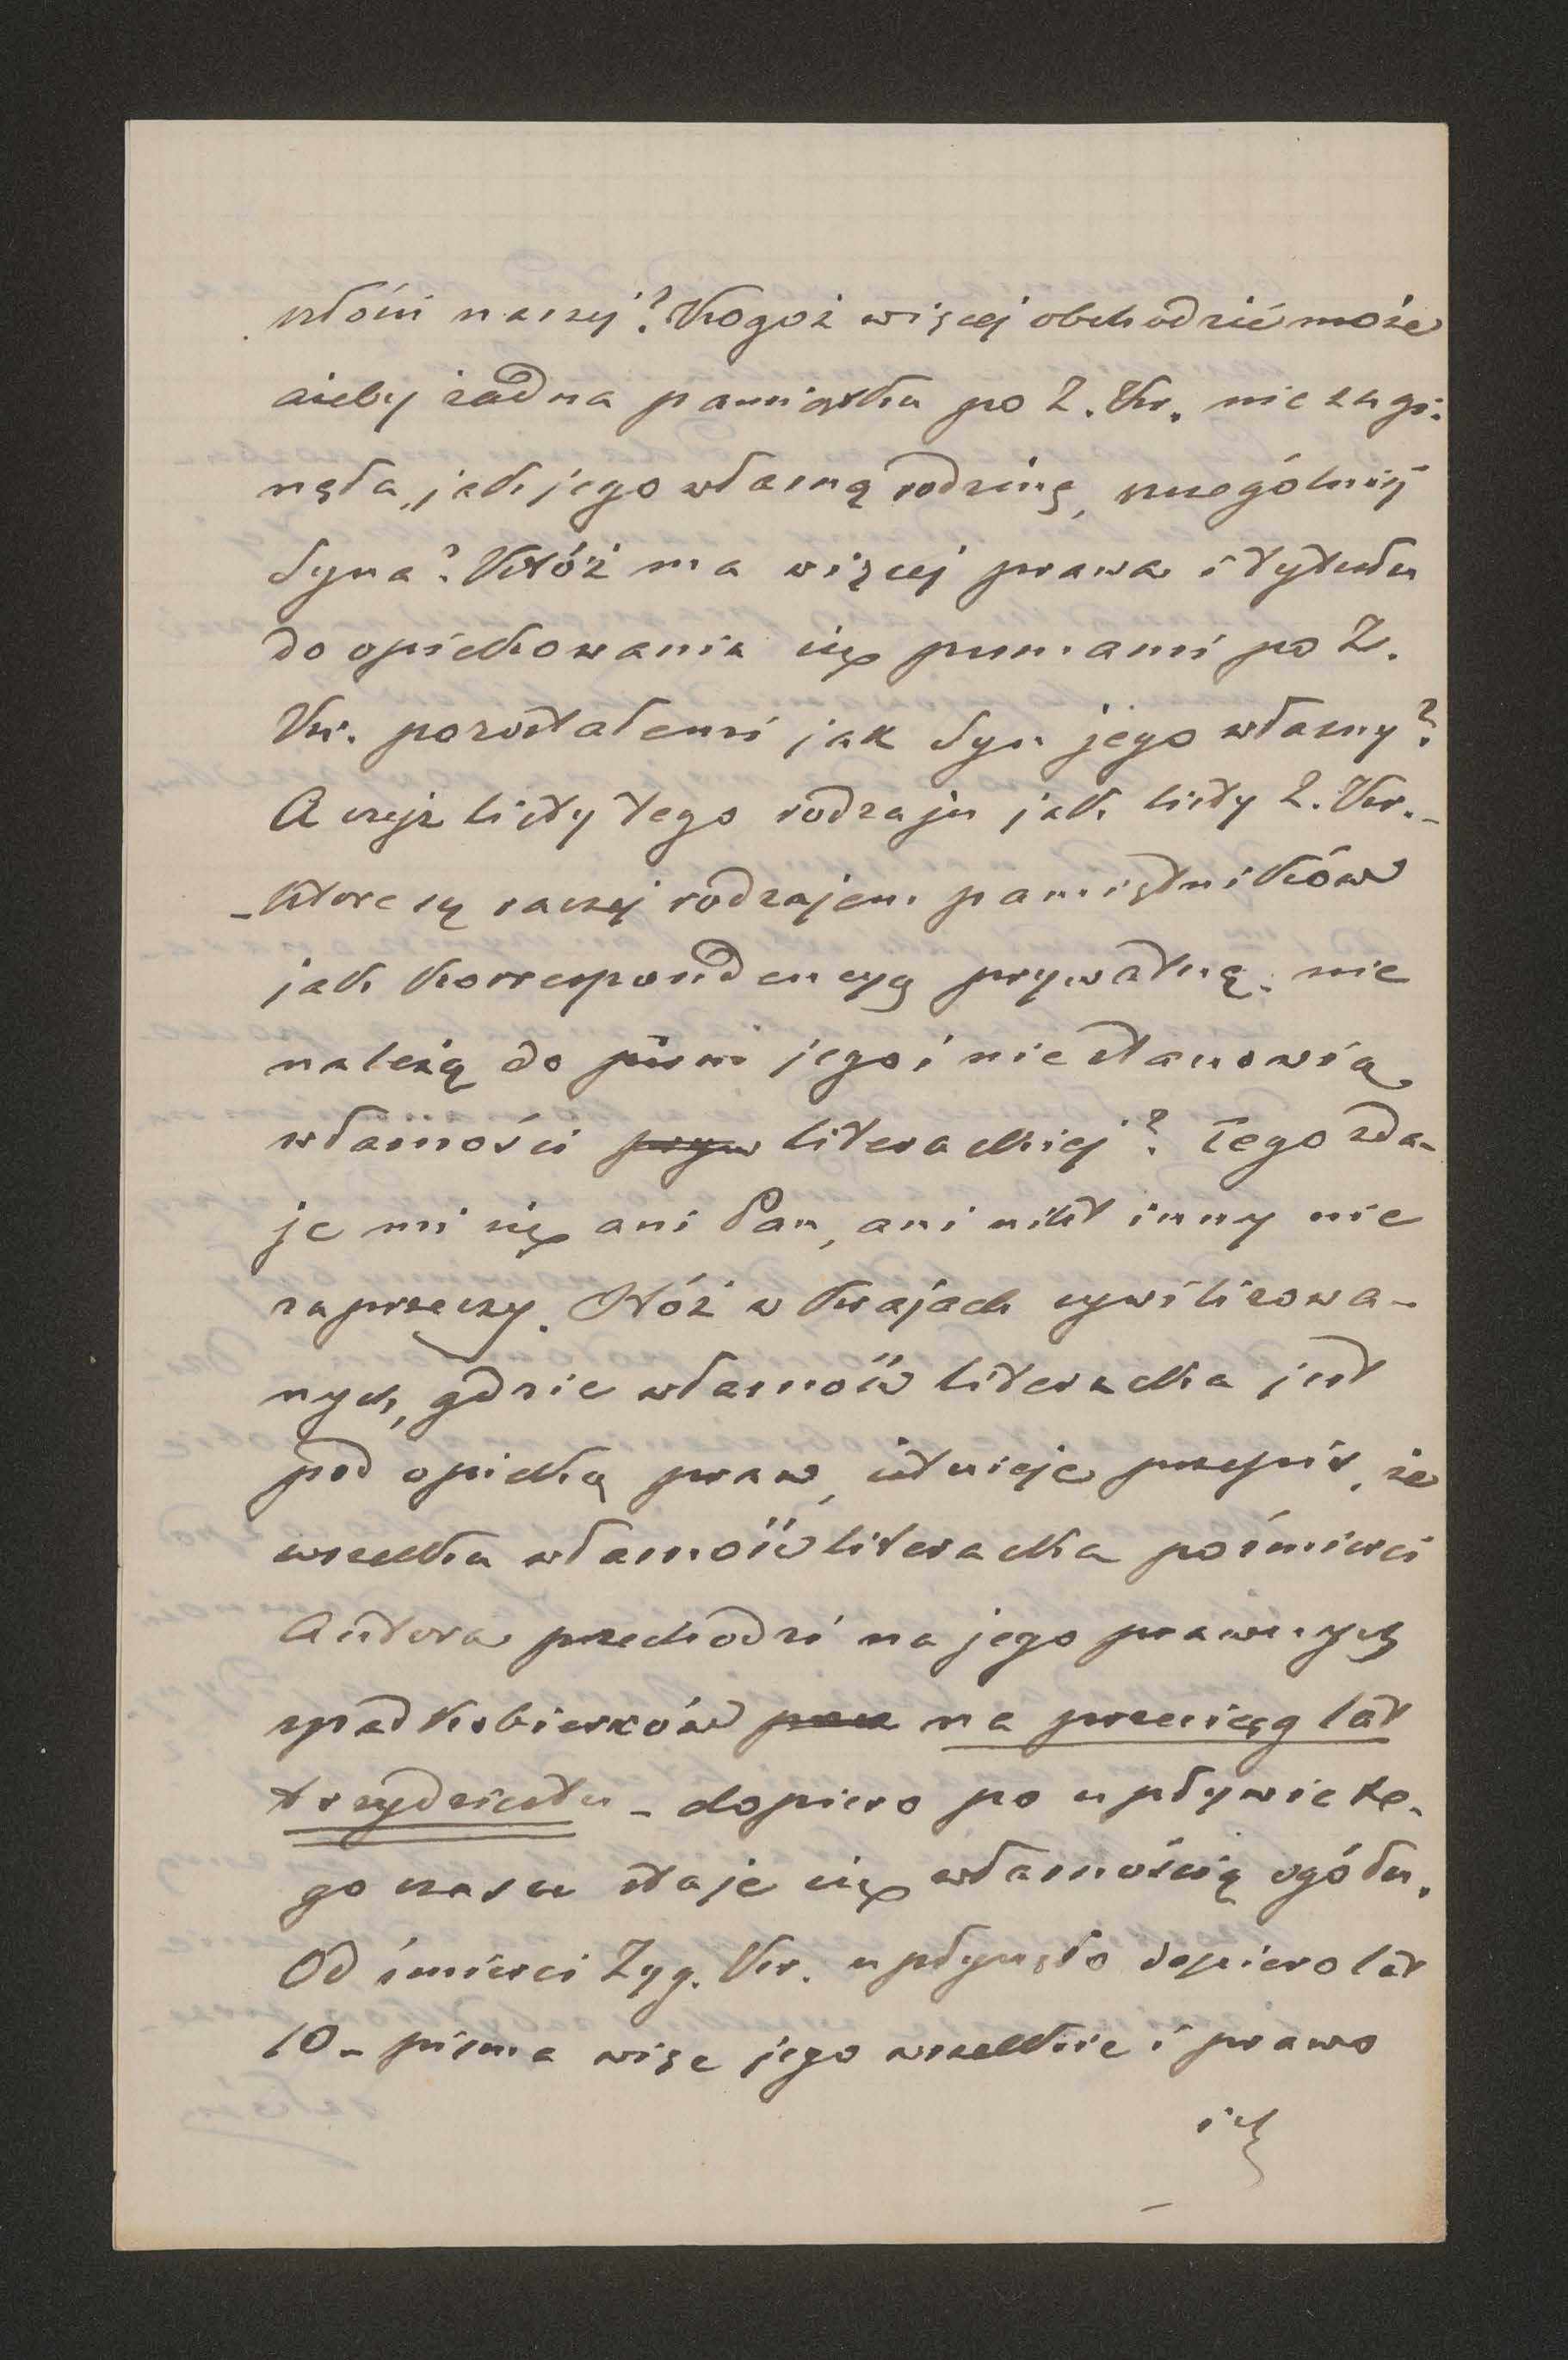 szłości naszej? Kogoż więcej obchodzić może
ażeby żadna pamiątka po Z. Kr. nie zagi-
nęła, jak jego własną rodzinę, szczególniej
Syna? Któż ma więcej prawa i tytułu
do opiekowania się pismami po Z.
Kr. pozostałemi jak Syn jego własny?
A czyż listy tego rodzaju jak listy Z. Kr. -
- które są raczej rodzajem pamiętników
jak korrespondencyą prywatną. nie
należą do pism jego i nie stanowią
własności pryw literackiej? Tego zda-
je mi się ani Pan, ani nikt inny nie
zaprzeczy. Otóż w krajach cywilizowa-
nych, gdzie własność literacka jest
pod opieką praw, istnieje przepis, że
wszelka własność literacka po śmierci
Autora przechodzi na jego prawnych
spadkobierców na przeciąg lat
trzydziestu - dopiero po upływie te-
go czasu staje się własnością ogółu.
Od śmierci Zyg. Kr. upłynęło dopiero lat
10 - pisma więc jego wszelkie i prawo
ich